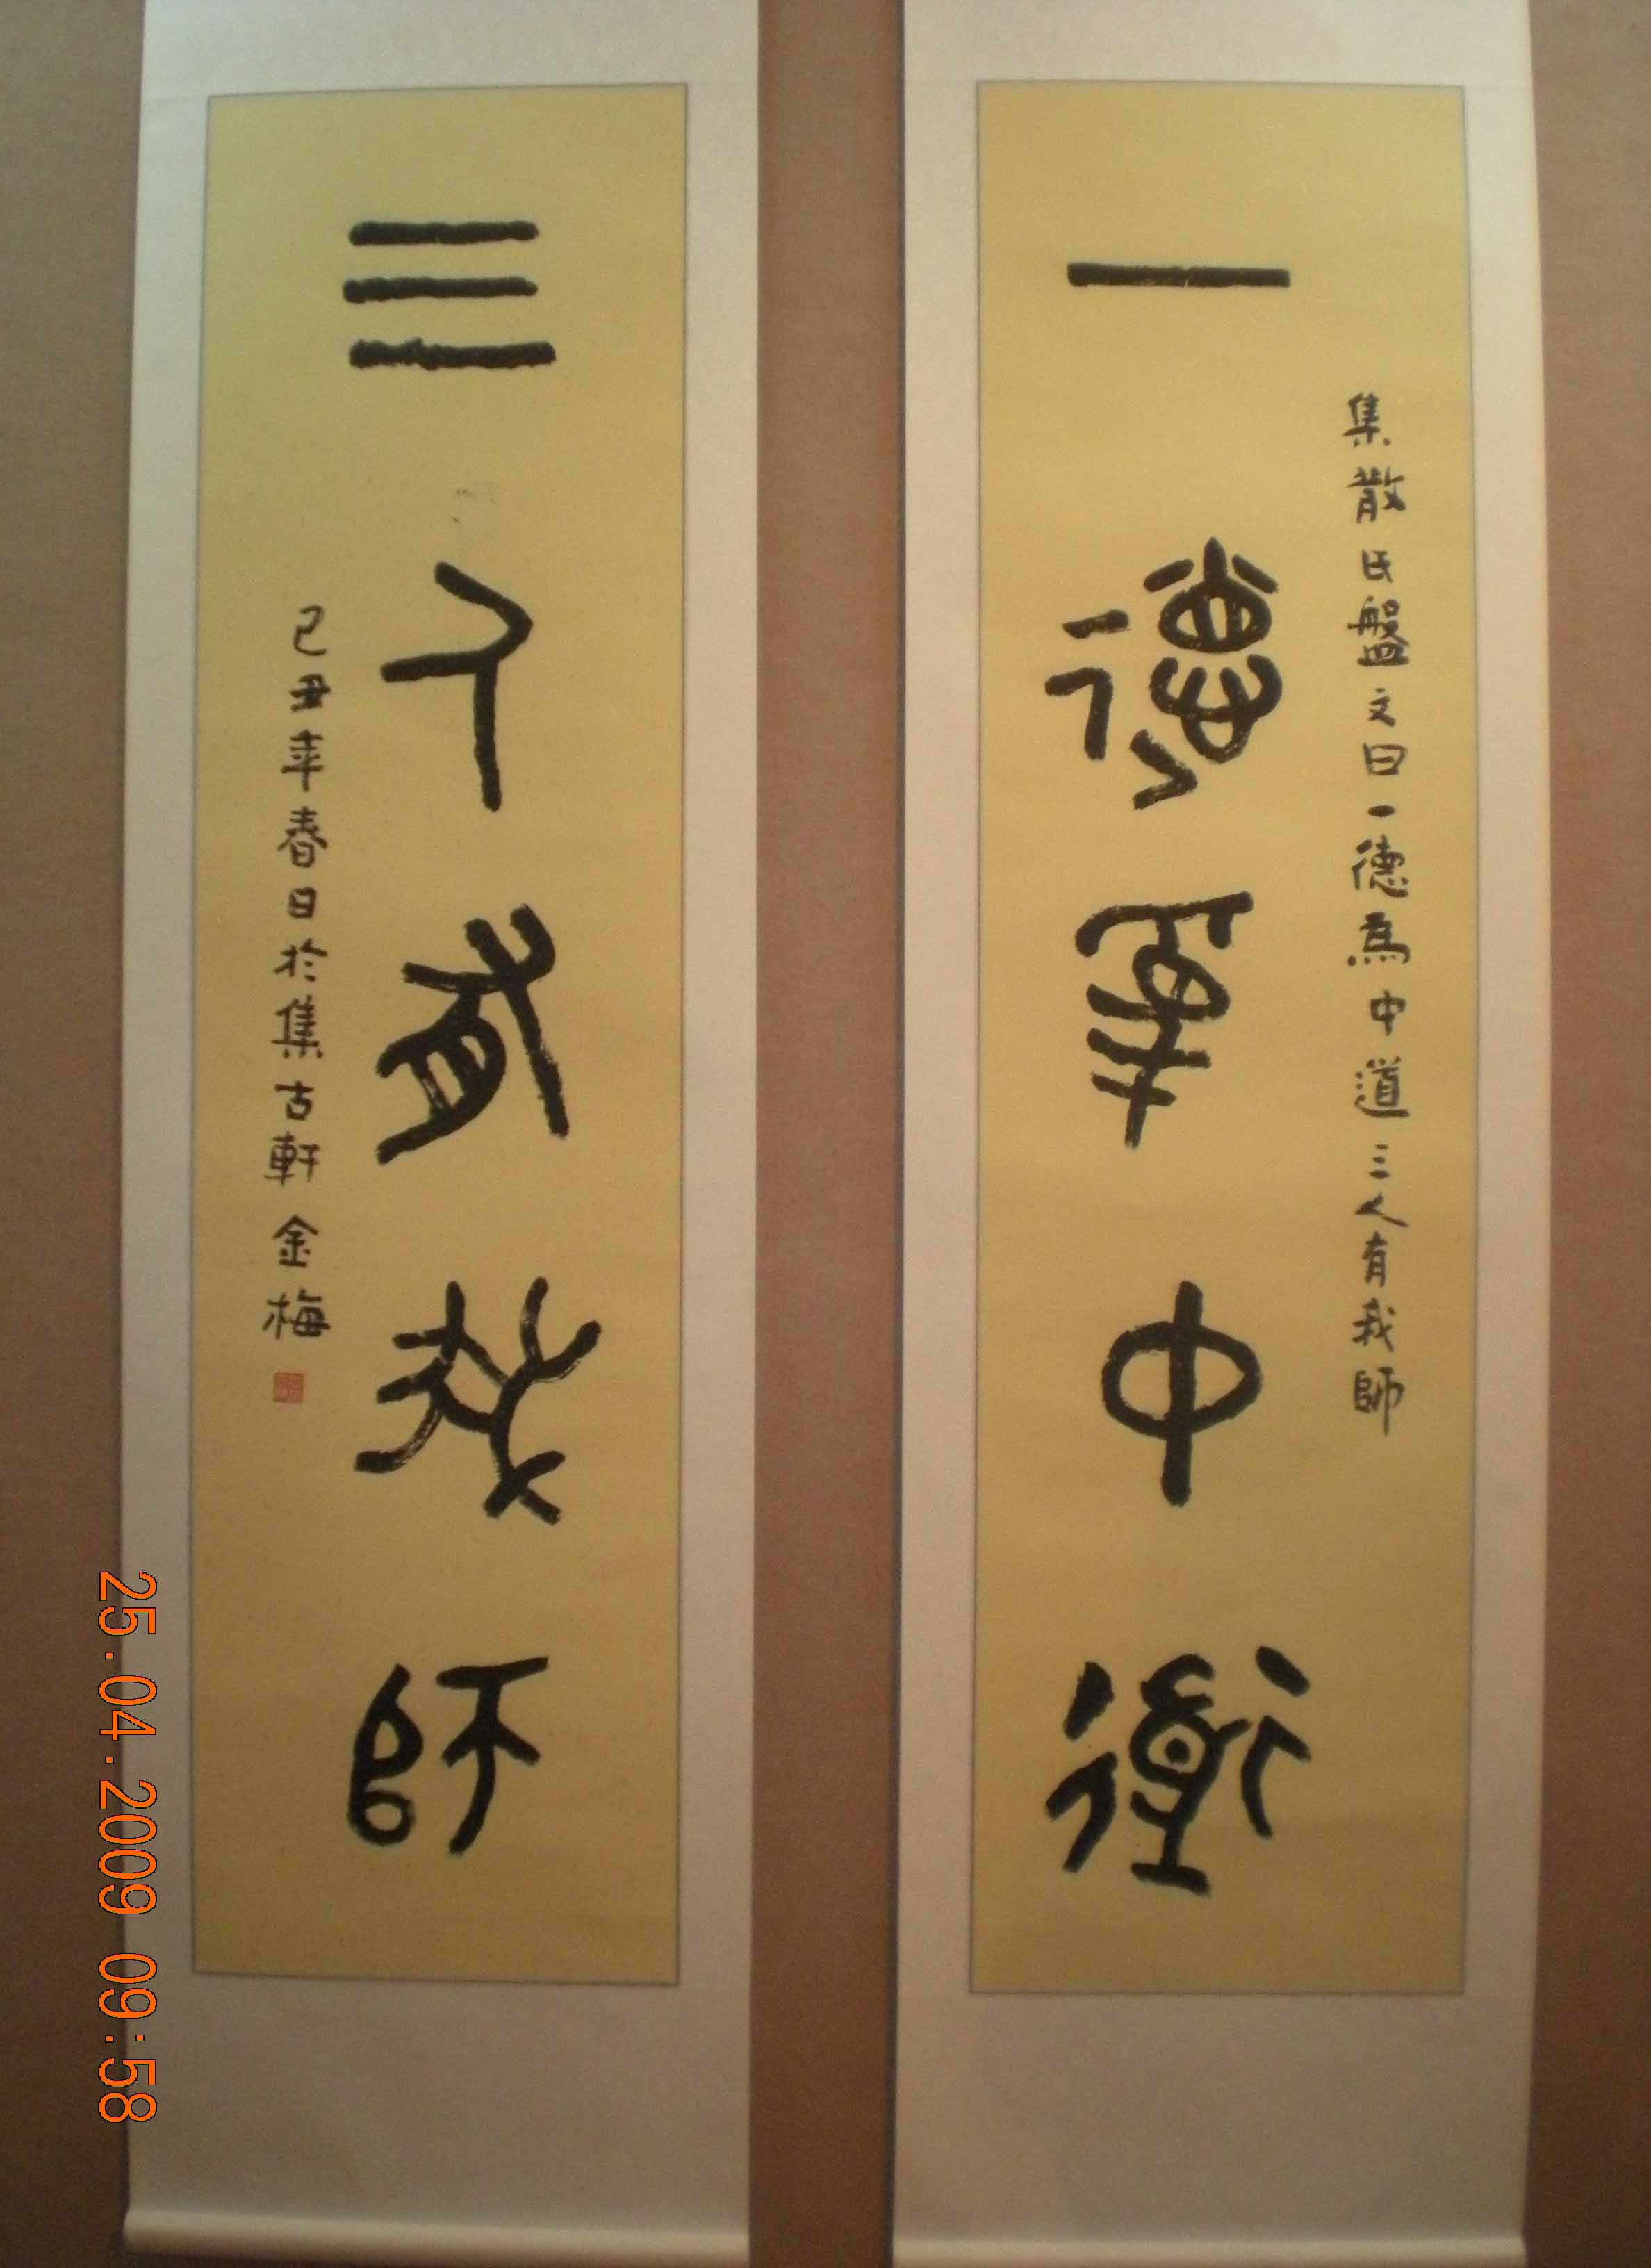 集散氏盤文曰一德為中道三人有我師
一德為中道
三人有我師
己丑年春日於集古軒金梅
25.04.2009 09:58